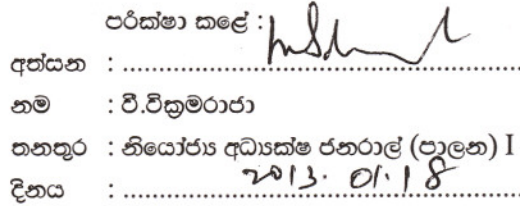 පරීක්ෂා කළේ :
අත්සන : ........................................................
නම : වී.වික්‍රමරාජා
තනතුර : නියෝජ්‍ය අධ්‍යක්ෂ ජනරාල් (පාලන) I
දිනය : 2013. 01. 18